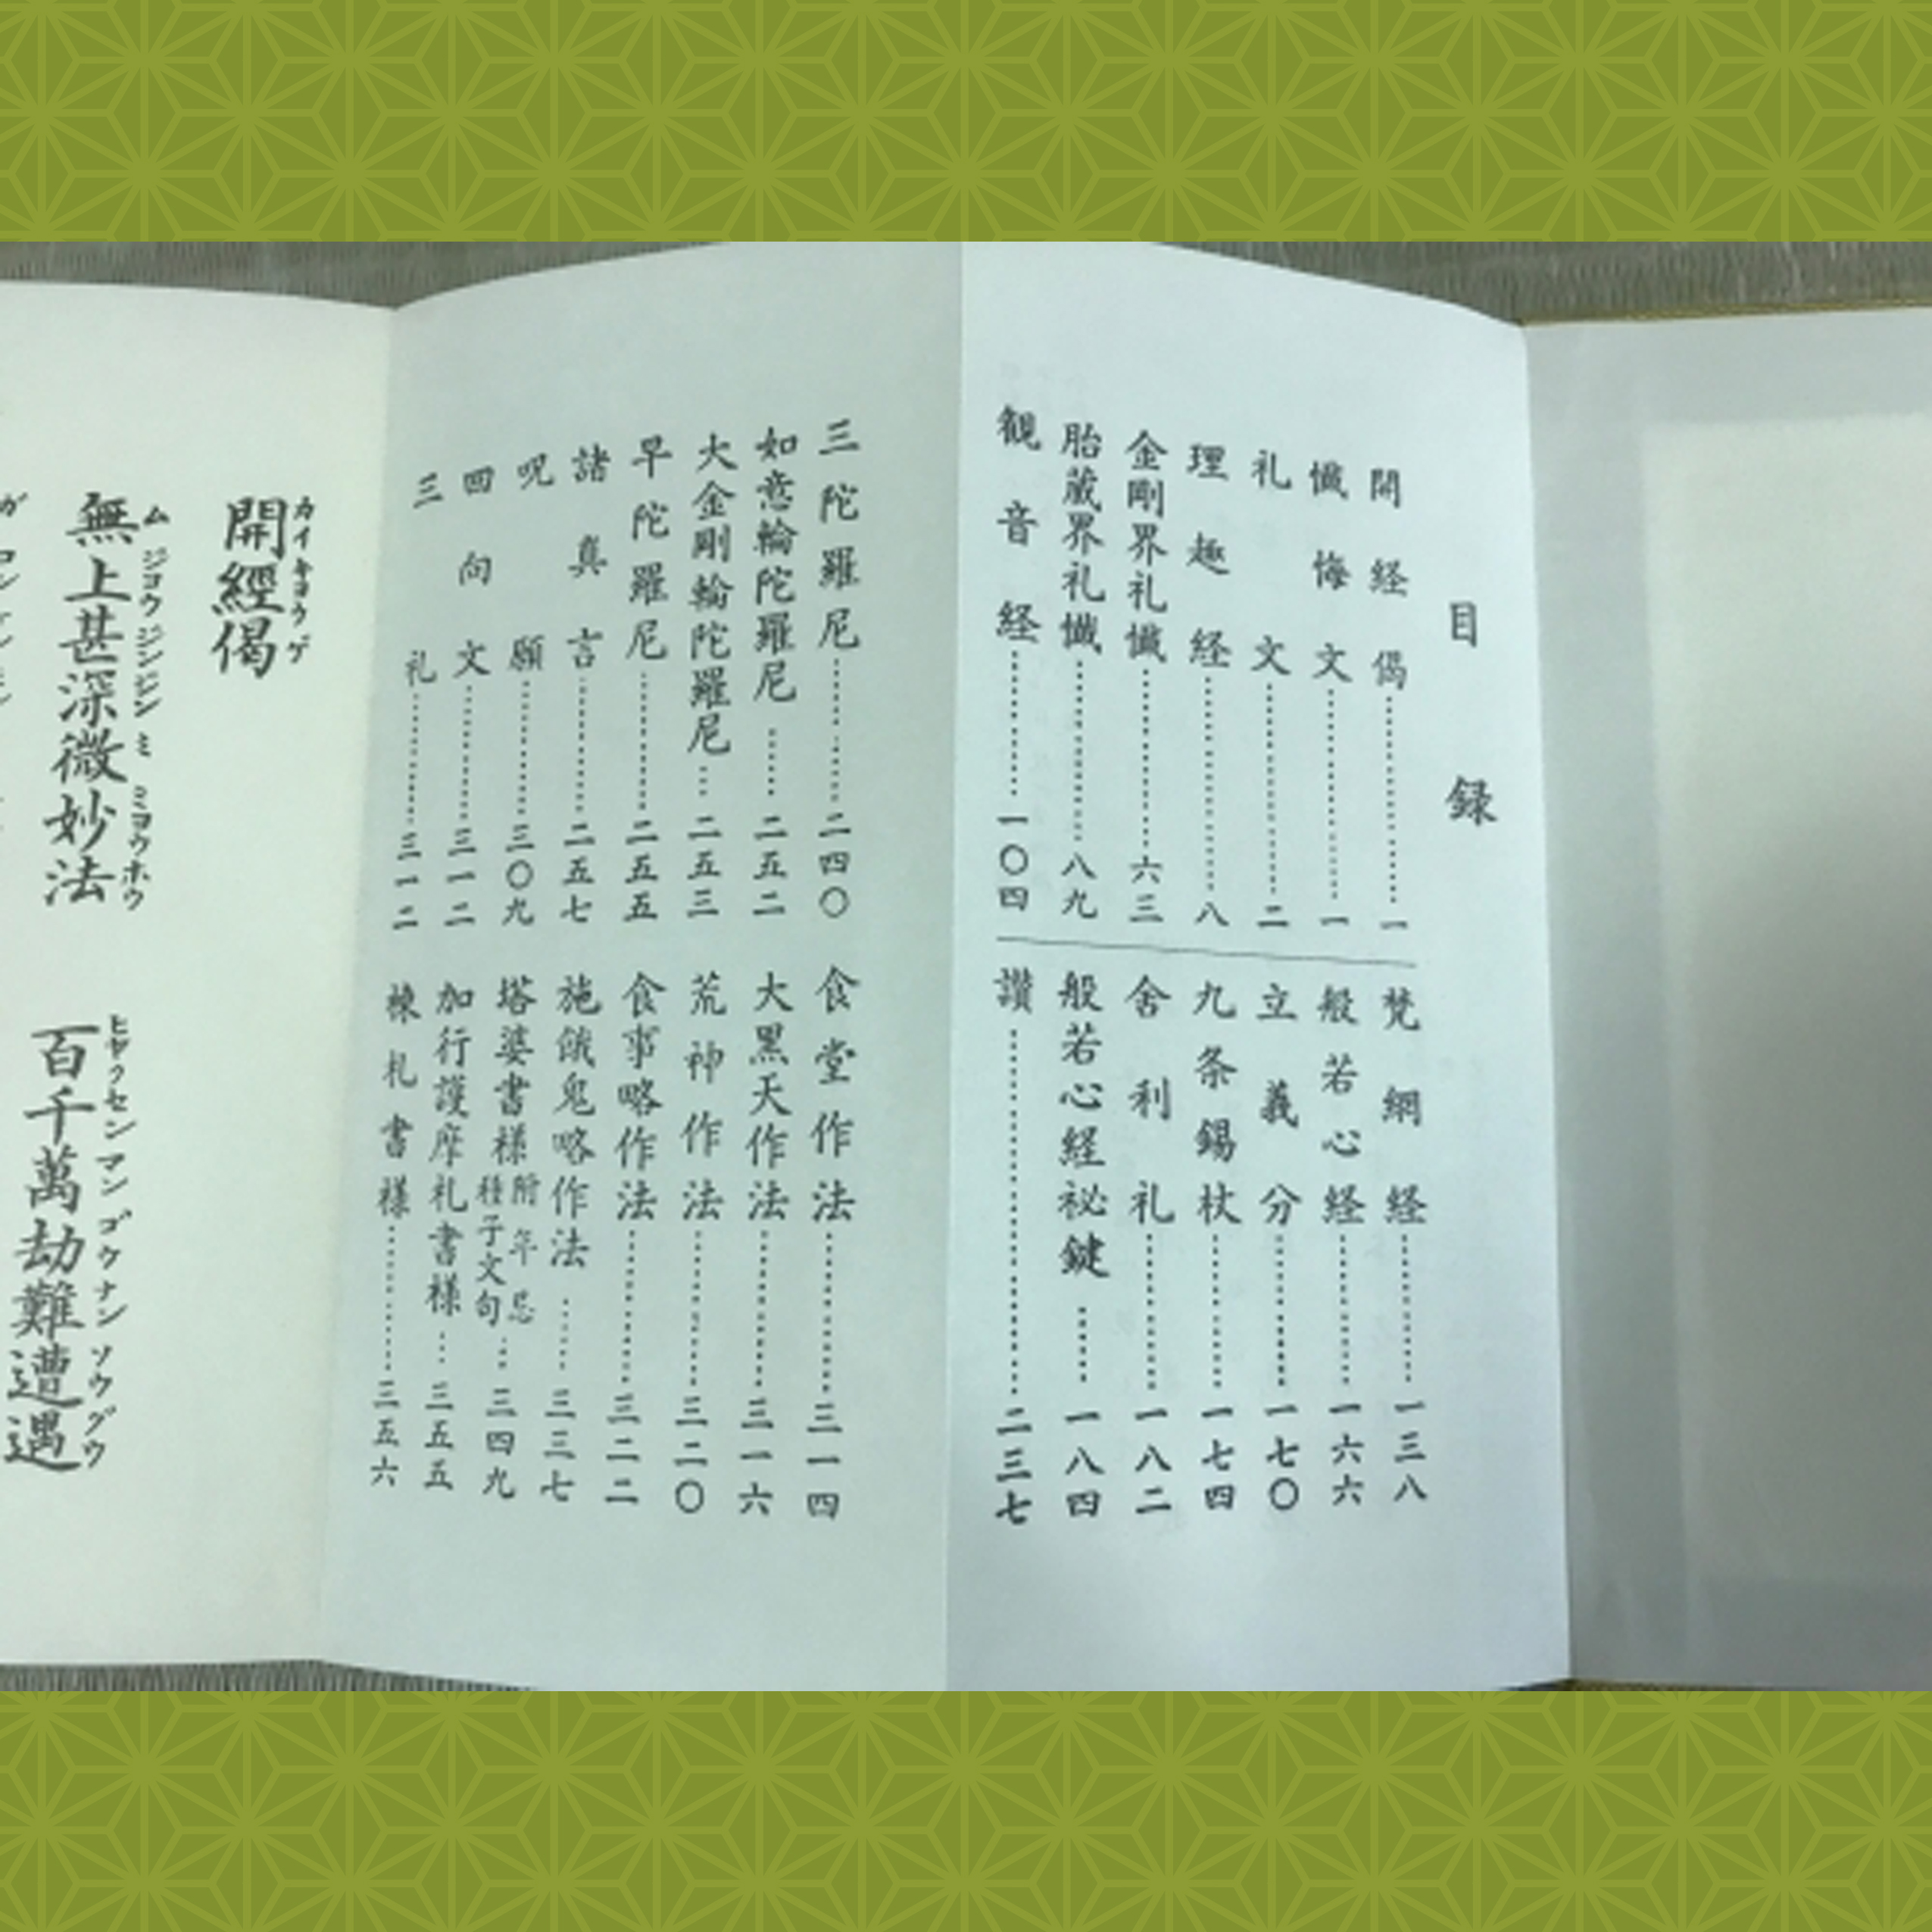 目録
開経偈………一
懺悔文………一
礼文………二
理趣経………八
金剛界礼懺………六三
胎蔵界礼懺………八九
観音経………一〇四
梵網経………一三八
般若心経………一六六
立義分………一七〇
九条錫杖………一七四
舎利礼………一八二
般若心経祕鍵……一八四
讃………二三七
三陀羅尼………二四〇
如意輪陀羅尼……二五二
大金剛輪陀羅尼…二五三
早陀羅尼………二五五
諸真言………二五七
呪願………三〇九
回向文………三一二
三礼………三一二
食堂作法………三一四
大黒天作法………三一六
荒神作法………三二〇
食事略作法………三二二
施餓鬼略作法……三三七
塔婆書様附年忌種子文句…三四九
加行護摩札書様…三五五
棟札書様………三五六
開經偈
カイキヨウゲ
無上甚深微妙法 百千萬劫難遭遇
ムジヨウジンジンミミヨウホウ ヒヤクセンマンゴウナンソウグウ